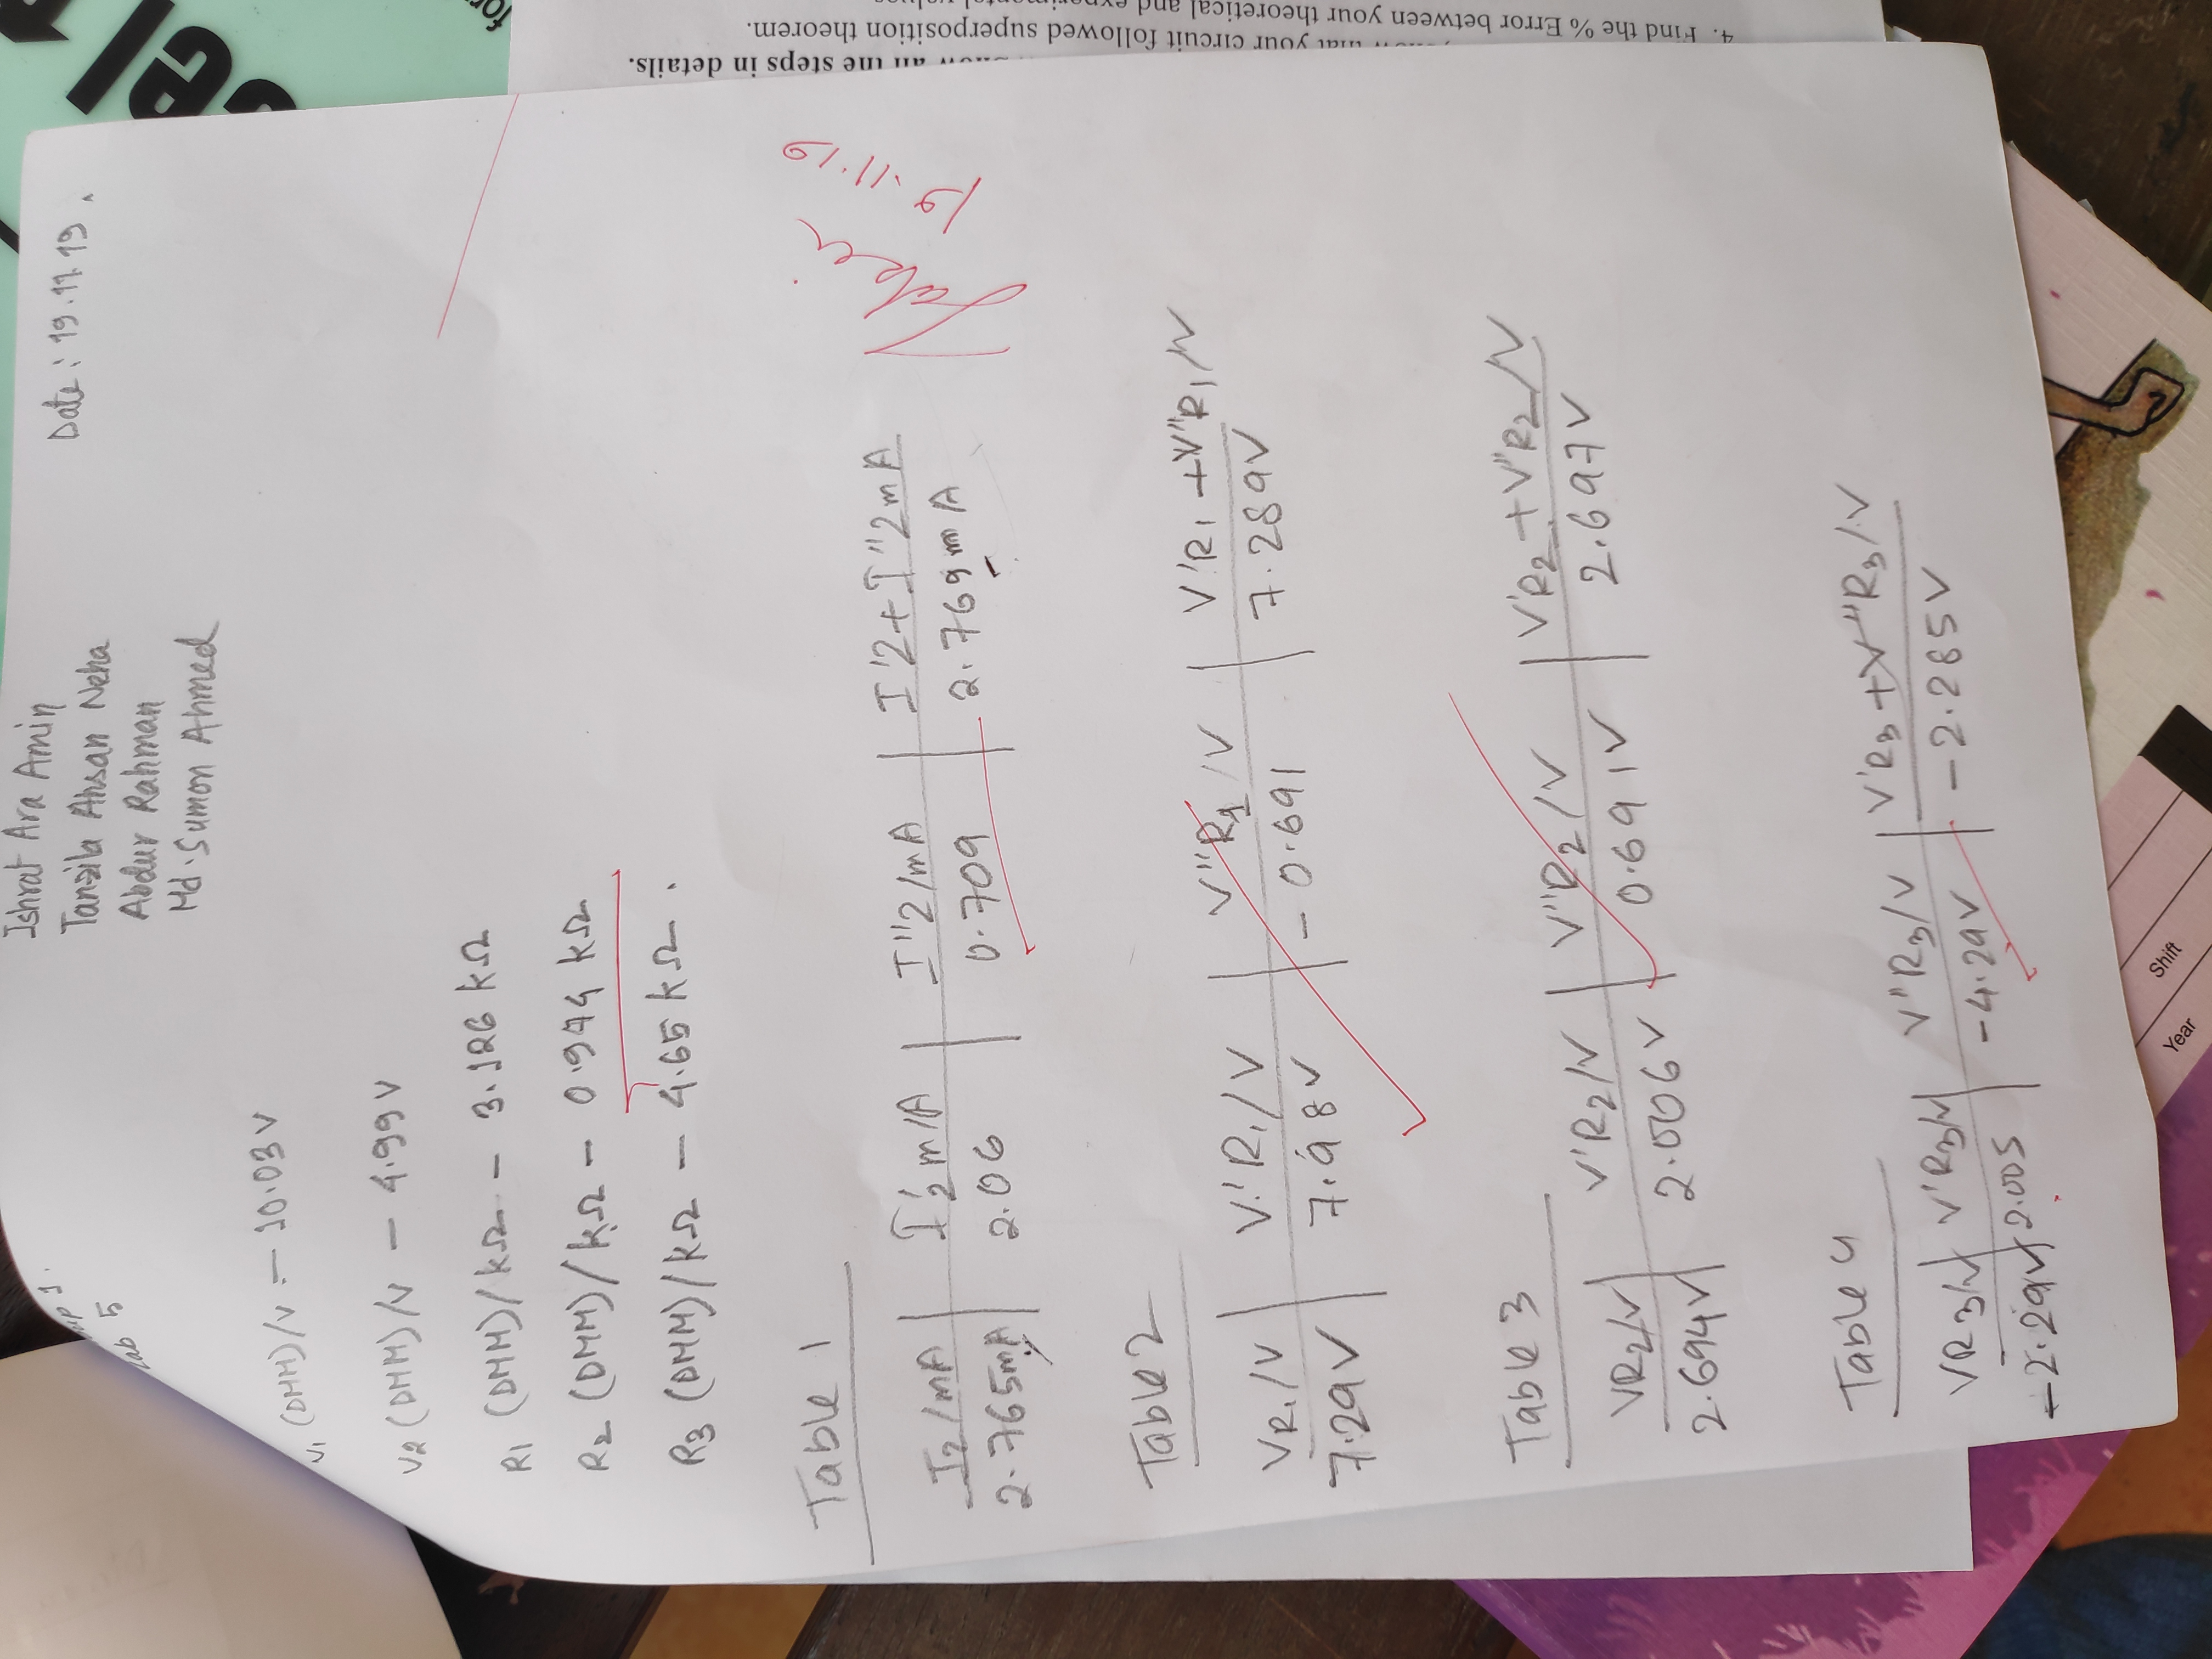 Ishrat Ara Amin
Tanzila Ahsan Neha
Abdur Rahman
Md. Sumon Ahmed
Date: 19.11.19.
up 1.
Lab 5
V1 (DMM)/V - 10.03 V
V2 (DMM)/V - 4.99 V
R1 (DMM)/kΩ - 3.126 kΩ
R2 (DMM)/kΩ - 0.974 kΩ
R3 (DMM)/kΩ - 4.65 kΩ.
Table 1
I2/mA | I'2 m/A | I''2/mA | I'2 + I''2 mA
2.765mA | 2.06 | 0.709 | 2.769 mA
19.11.19
Table 2
VR1/V | V'R1/V | V''R1/V | V'R1 + V''R1/V
7.29V | 7.98V | -0.691 | 7.289V
Table 3
VR2/V | V'R2/V | V''R2/V | V'R2 + V''R2/V
2.694V | 2.006V | 0.691V | 2.697V
Table 4
VR3/V | V'R3/V | V''R3/V | V'R3 + V''R3/V
-2.29V | 2.005 | -4.29V | -2.285V
the steps in details.
your circuit followed superposition theorem.
4. Find the % Error between your theoretical and experimental values
Shift
Year
cel
for